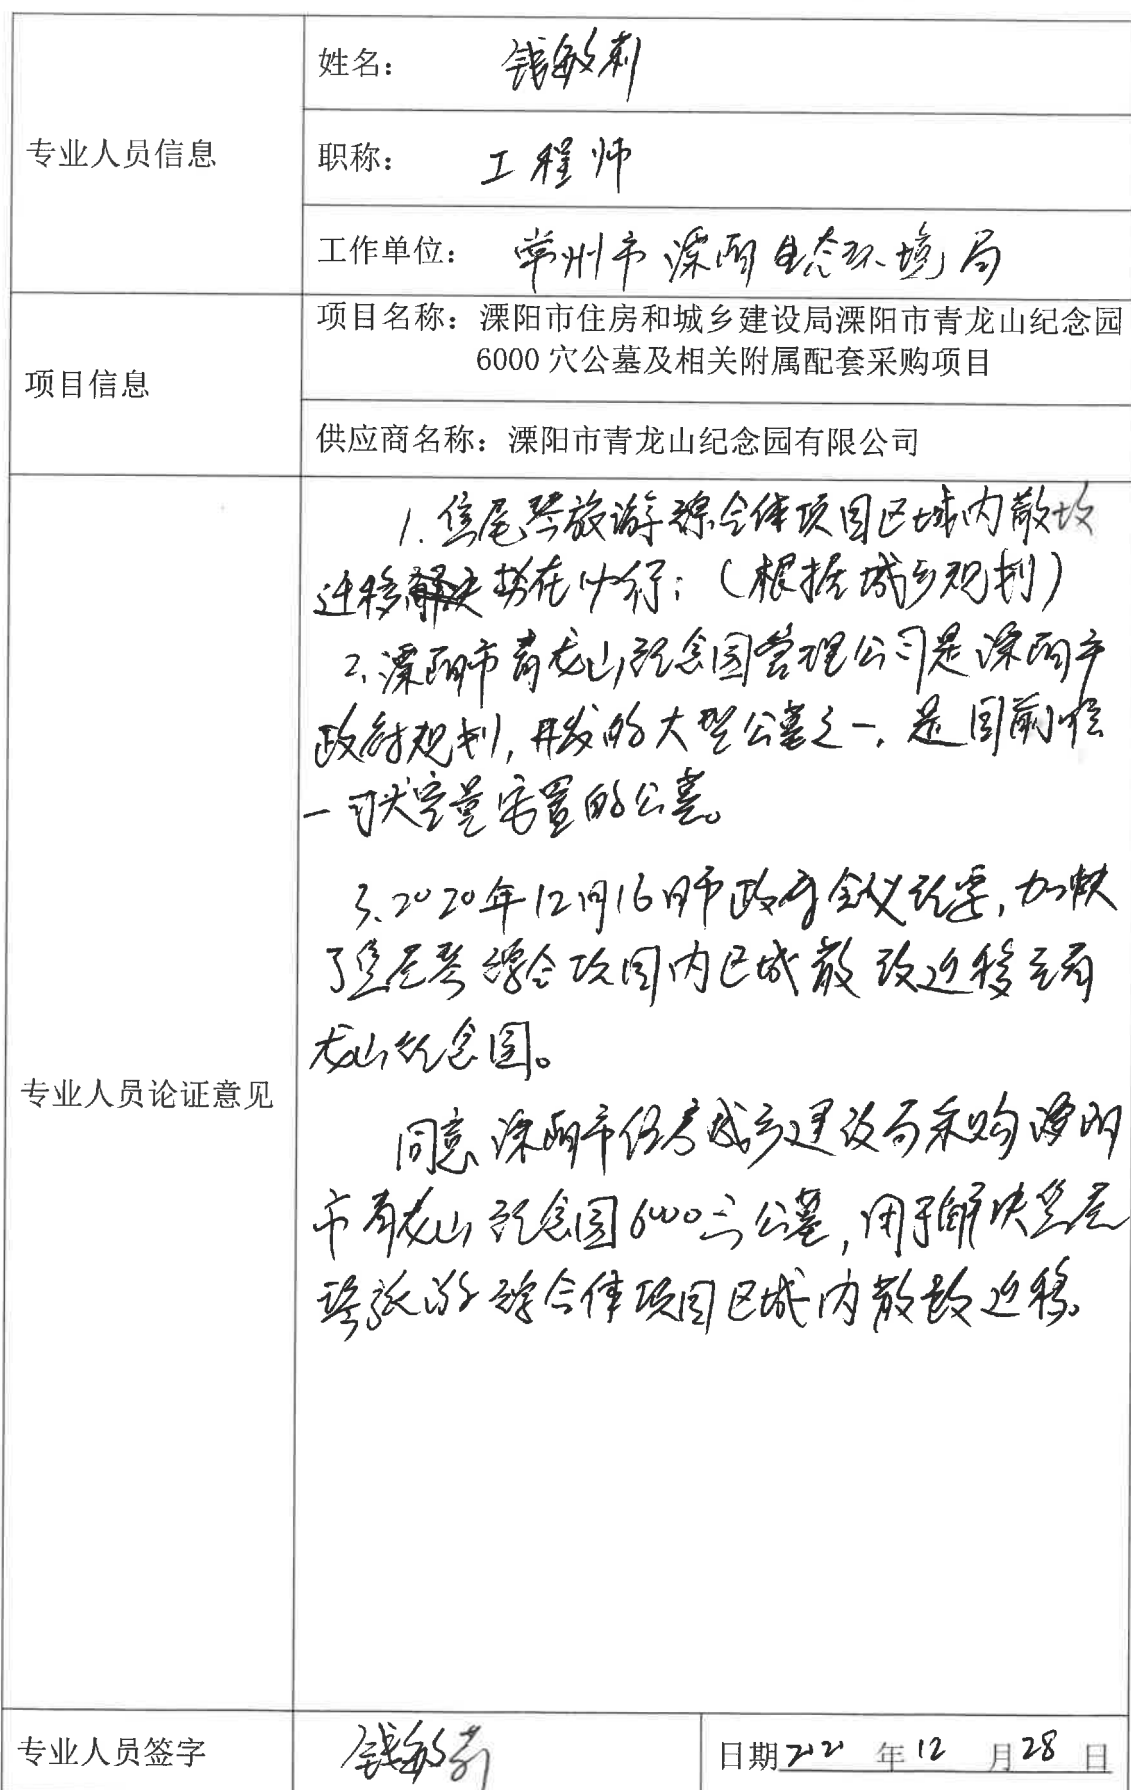 专业人员信息
姓名: 钱敏莉
职称: 工程师
工作单位: 常州市溧阳生态环境局
项目信息
项目名称: 溧阳市住房和城乡建设局溧阳市青龙山纪念园
6000 穴公墓及相关附属配套采购项目
供应商名称: 溧阳市青龙山纪念园有限公司
专业人员论证意见
1. 焦尾琴旅游综合体项目区域内散坟
迁移势在必行;(根据城乡规划)
2. 溧阳市青龙山纪念园管理公司是溧阳市
政府规划,开发的大型公墓之一,是目前唯
一可大容量安置的公墓。
3. 2020年12月16日市政府会议纪要,加快
了焦尾琴综合项目内区域散坟迁移至青
龙山纪念园。
同意溧阳市住房城乡建设局采购溧阳
市青龙山纪念园6000穴公墓,用于解决焦尾
琴旅游综合体项目区域内散坟迁移。
专业人员签字
钱敏莉
日期 年12月28日